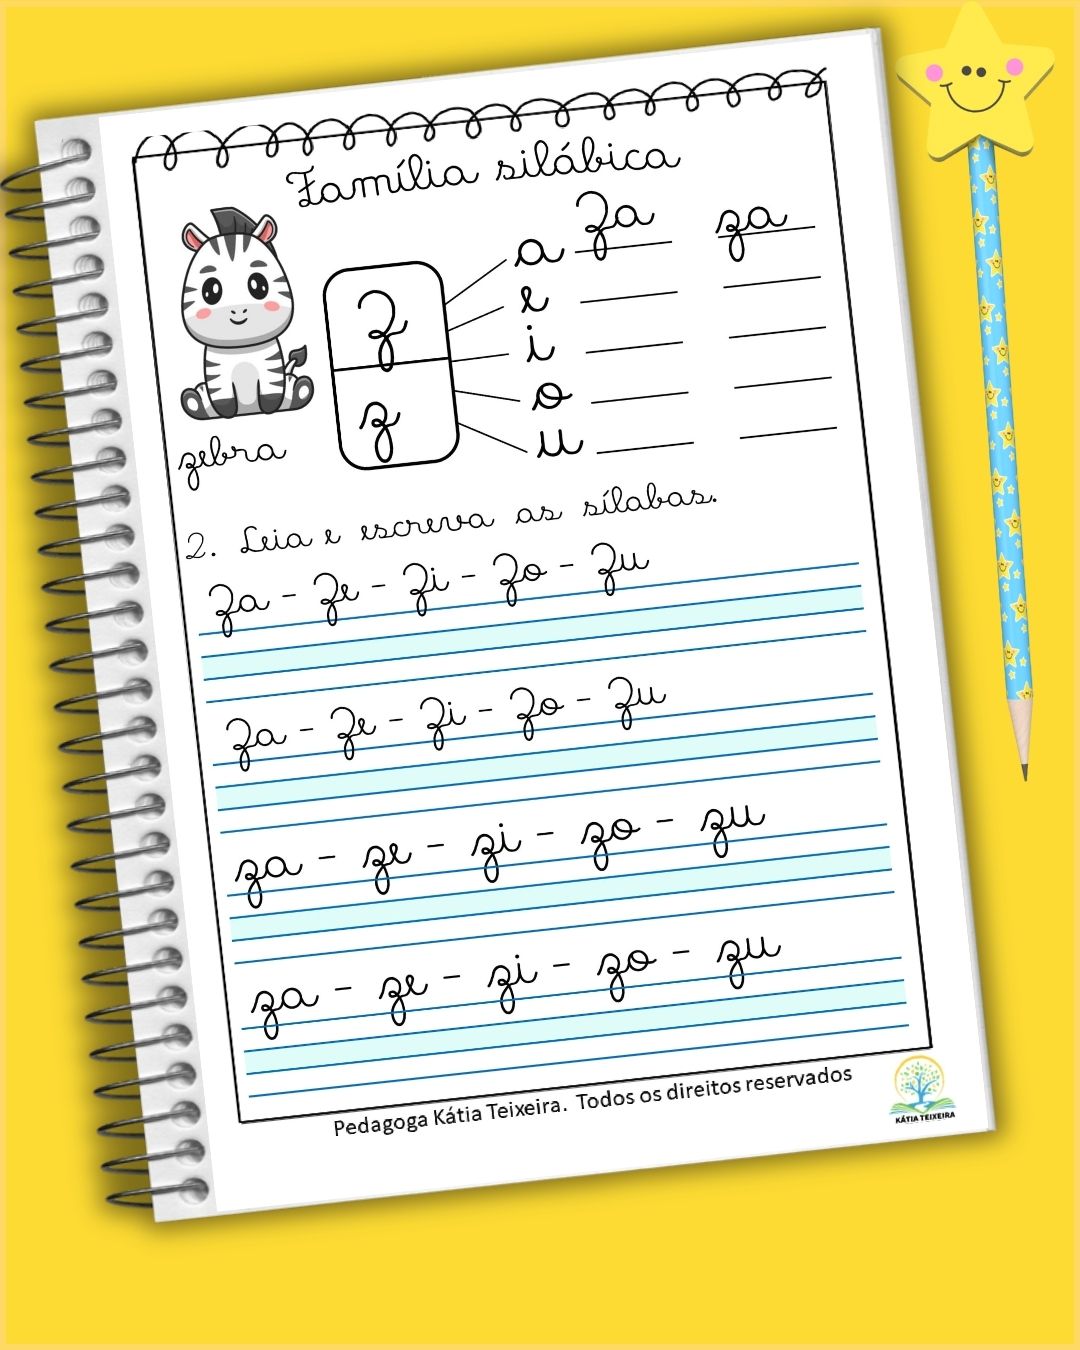 Família silábica
Z
z
a Za za
e
i
o
u
zebra
2. Leia e escreva as sílabas.
Za - Ze - Zi - Zo - Zu
Za - Ze - Zi - Zo - Zu
za - ze - zi - zo - zu
za - ze - zi - zo - zu
Pedagoga Kátia Teixeira. Todos os direitos reservados
KÁTIA TEIXEIRA